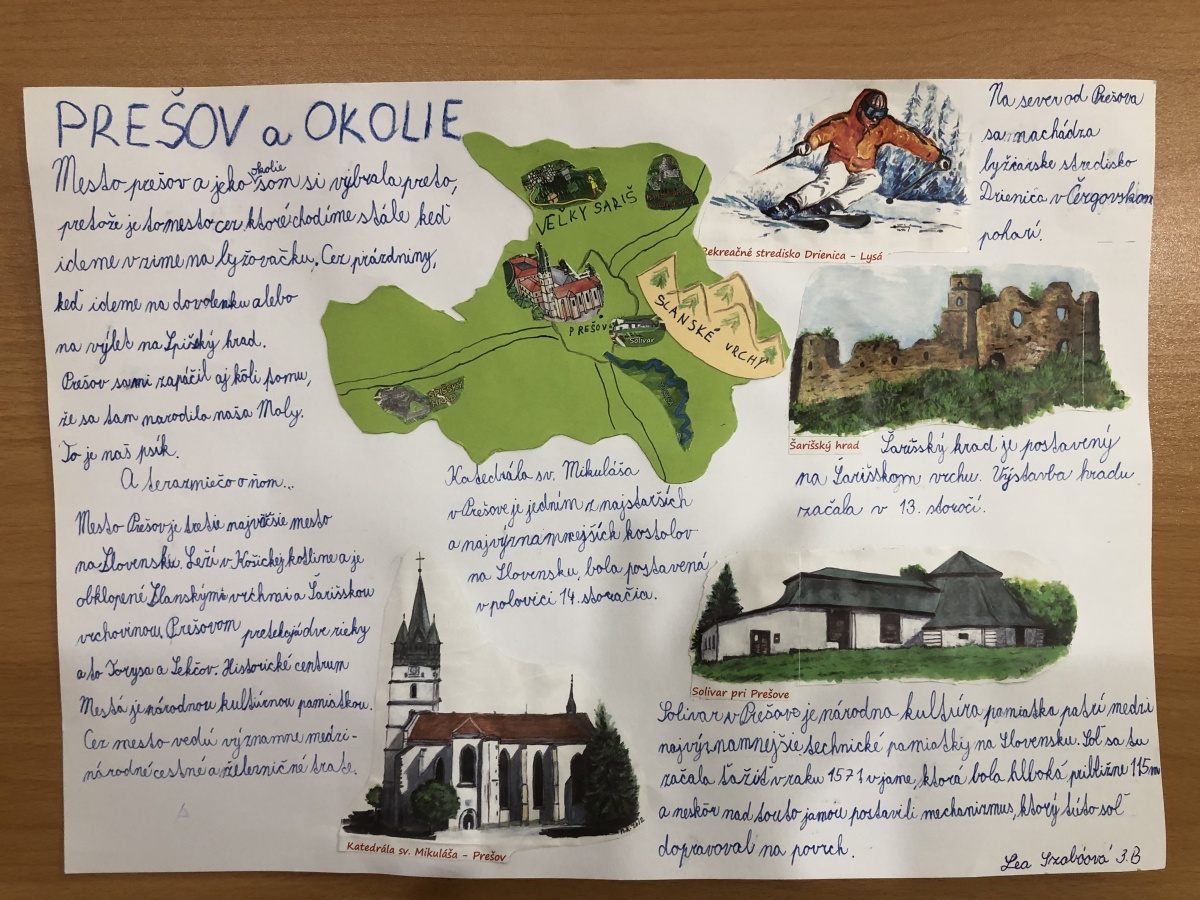 PREŠOV a OKOLIE
Mesto prešov a jeho okolie som si vybrala preto,
pretože je to mesto cez ktoré chodíme stále keď
ideme v zime na lyžovačku. Cez prázdniny,
keď ideme na dovolenku alebo
na výlet na Spišský hrad.
Prešov sa mi zapáčil aj kôli tomu,
že sa tam narodila naša Moly.
To je náš psík.
A teraz niečo o ňom...
Mesto Prešov je tretie najväčšie mesto
na Slovensku. Leží v Košickej kotline a je
obklopené Slanskými vrchmi a Šarišskou
vrchovinou. Prešovom pretekajú dve rieky
a to Torysa a Sekčov. Historické centrum
Mestá je národnou kultúrnou pamiatkou.
Cez mesto vedú významne medzi-
národné cestné a železničné trate.
VEĽKÝ SARIŠ
PREŠOV
Solivar
SLANSKÉ VRCHY
Katedrála sv. Mikuláša
v Prešove je jedním z najstarších
a najvýznamnejších kostolov
na Slovensku, bola postavená
v polovici 14. storačia.
Katedrála sv. Mikuláša - Prešov
Na sever od Prešova
sa nachádza
lyžiarske stredisko
Drienica v Čergovskom
pohorí.
Rekreačné stredisko Drienica - Lysá
Šarišský hrad
Šarišský hrad je postavený
na Šarišskom vrchu. Výstavba hradu
začala v 13. storočí.
Solivar pri Prešove
Solivar v Prešove je národna kultúra pamiatka patrí medzi
najvýznamnejšie technické pamiatky na Slovensku. Soľ sa tu
začala ťažiť v roku 1571 v jame, ktorá bola hlboká približne 115m
a neskôr nad touto jamou postavili mechanizmus, ktorý túto soľ
dopravoval na povrch.
Lea Szabóová 3.B